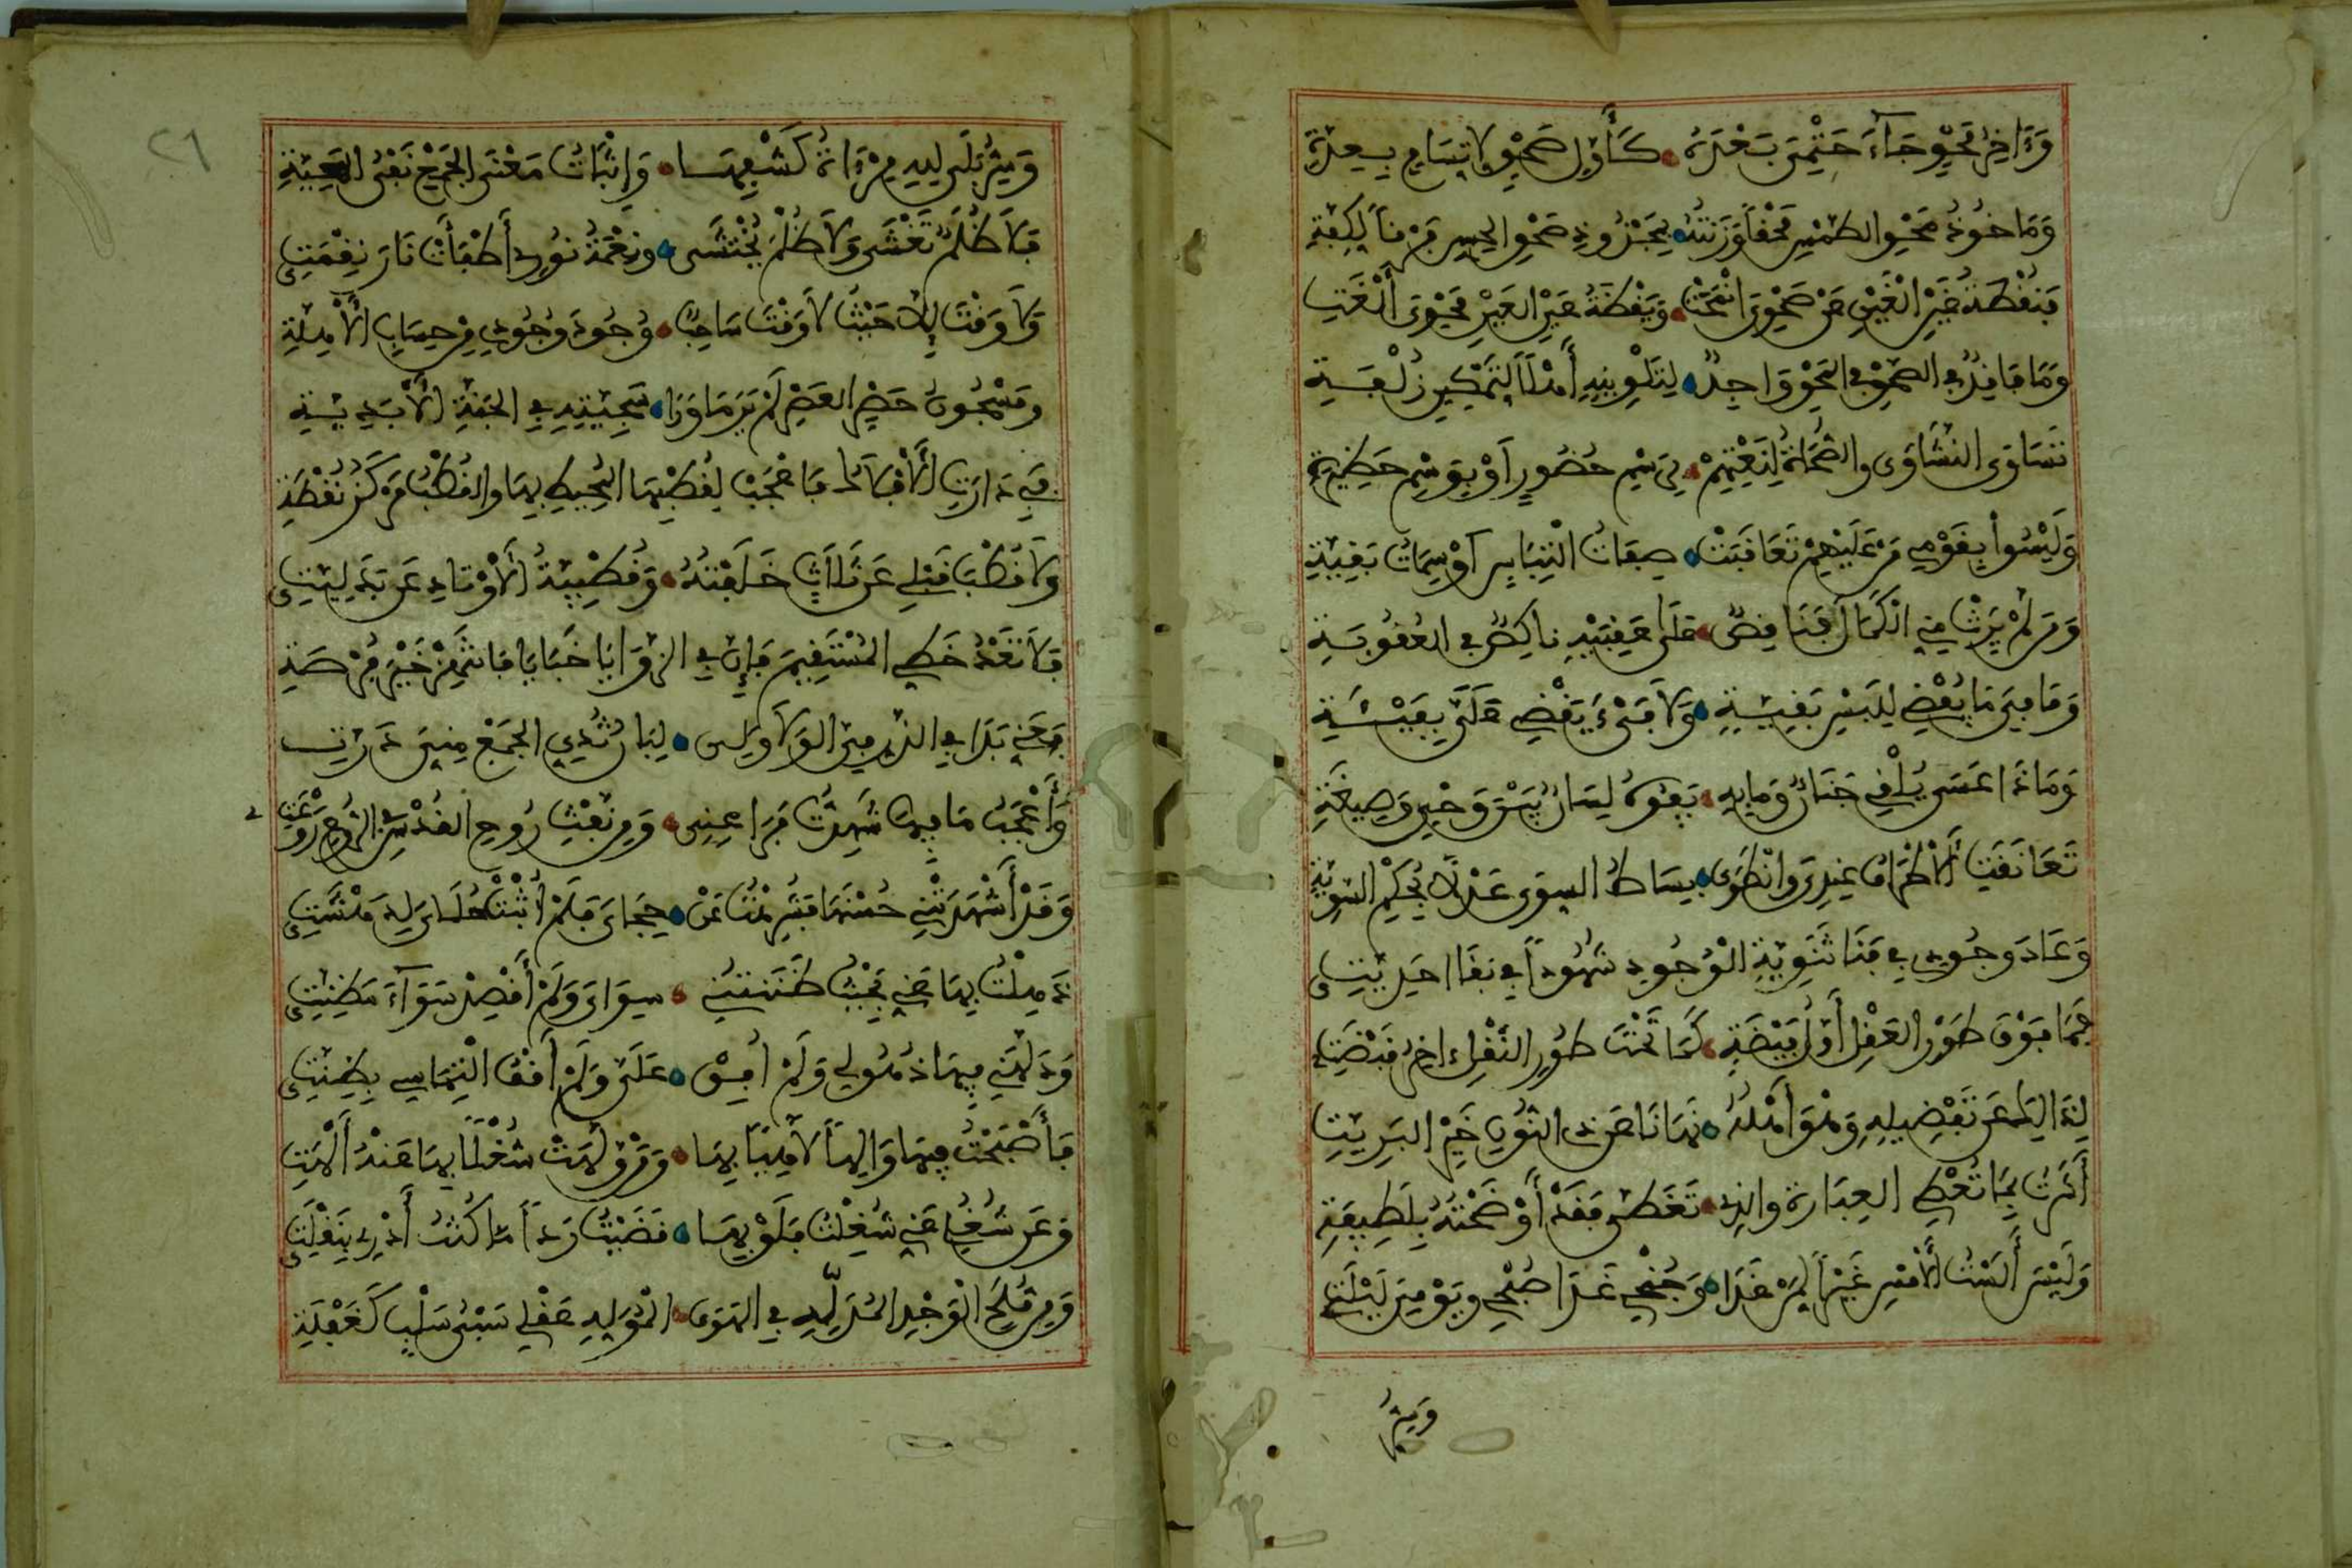 وءاخر محو جاء ختمي بعده كأول صحو لارتسام بعدة
ومأخوذ محو الطمس محقا وزنته بمجذوذ صحو الحس فرقا بكفة
فنقطة غين الغين عن صحوي انمحت ويقظة عين العين محوي ألغت
وما فاقد في الصحو في المحو واجد لتلوينه أهلا لتمكين زلفة
تساوى النشاوى والصحاة لنعتهم برسم حضور أو بوسم حظيرة
وليسوا بقومي من عليهم تعاقبت صفات التباس أو سمات بقية
ومن لم يرث مني الكمال فناقص على عقبيه ناكص في العقوبة
وما في ما يفضي للبس بقية ولا فيء يقضي علي بفيئة
وماذا عسى يلقي جنان وما به يفوه لسان بين وحي وصيغة
تعانقت الأطراف عندي وانطوى بساط السوى عدلا بحكم السوية
وعاد وجودي في فنا ثنوية الوجود شهودا في بقا احديتي
فما فوق طور العقل أول فيضة كما تحت طور النقل اخر قبضة
لذالك عن تفضيله وهو أهله نهانا عن ذي النون خير البريت
أشرت بما تعطي العبارة والذي تغطى فقد أوضحته بلطيفة
وليس ألست الأمس غيرا لمن غدا وجنحي غدا صبحي ويومي ليلتي
وسر
٢٦
وسر بلى لله مرءاة كشفها وإثبات معنى الجمع نفي المعية
فلا ظلم تغشى ولا ظلم يختشى ونعمة نوري أطفأت نار نقمتي
ولا وقت إلا حيث لا وقت حاسبا وجود وجودي من حساب الأهلة
ومسجون حصر العصر لم ير ما ورا سجينه في الجنة الأبدية
فبي دارت الأفلاك فاعجب لقطبها المحيط بها والقطب مركز نقطة
ولا قطب قبلي عن ثلاث خلفته وقطبية الأوتاد عن بدليتي
فلا تعد خطي المستقيم فإن في الزوايا خبايا فانتهز خير فرصة
فعني بدا في الذر في الولا ولي لبان ثدي الجمع مني درت
وأعجب ما فيها شهدت فراعني ومن نفث روح القدس في الروع روعتي
وقد أشهدتني حسنها فشدهت عن حجاي فلم أثبت حلاي لدهشتي
ذهلت بها عني بحيث ظننتني سواي ولم أقصد سواء مظنتي
ودلهني فيها ذهولي ولم أفق علي ولم أقف التماسي بظنتي
فأصبحت فيها والها لاهيا بها ومن ولهت شغلا بها عنه ألهت
وعن شغلي عني شغلت فلو بها قضيت ردا ما كنت أدري بنقلتي
ومن ملح الوجد المدله في الهوى المولِه عقلي سبي سلب كغفلة